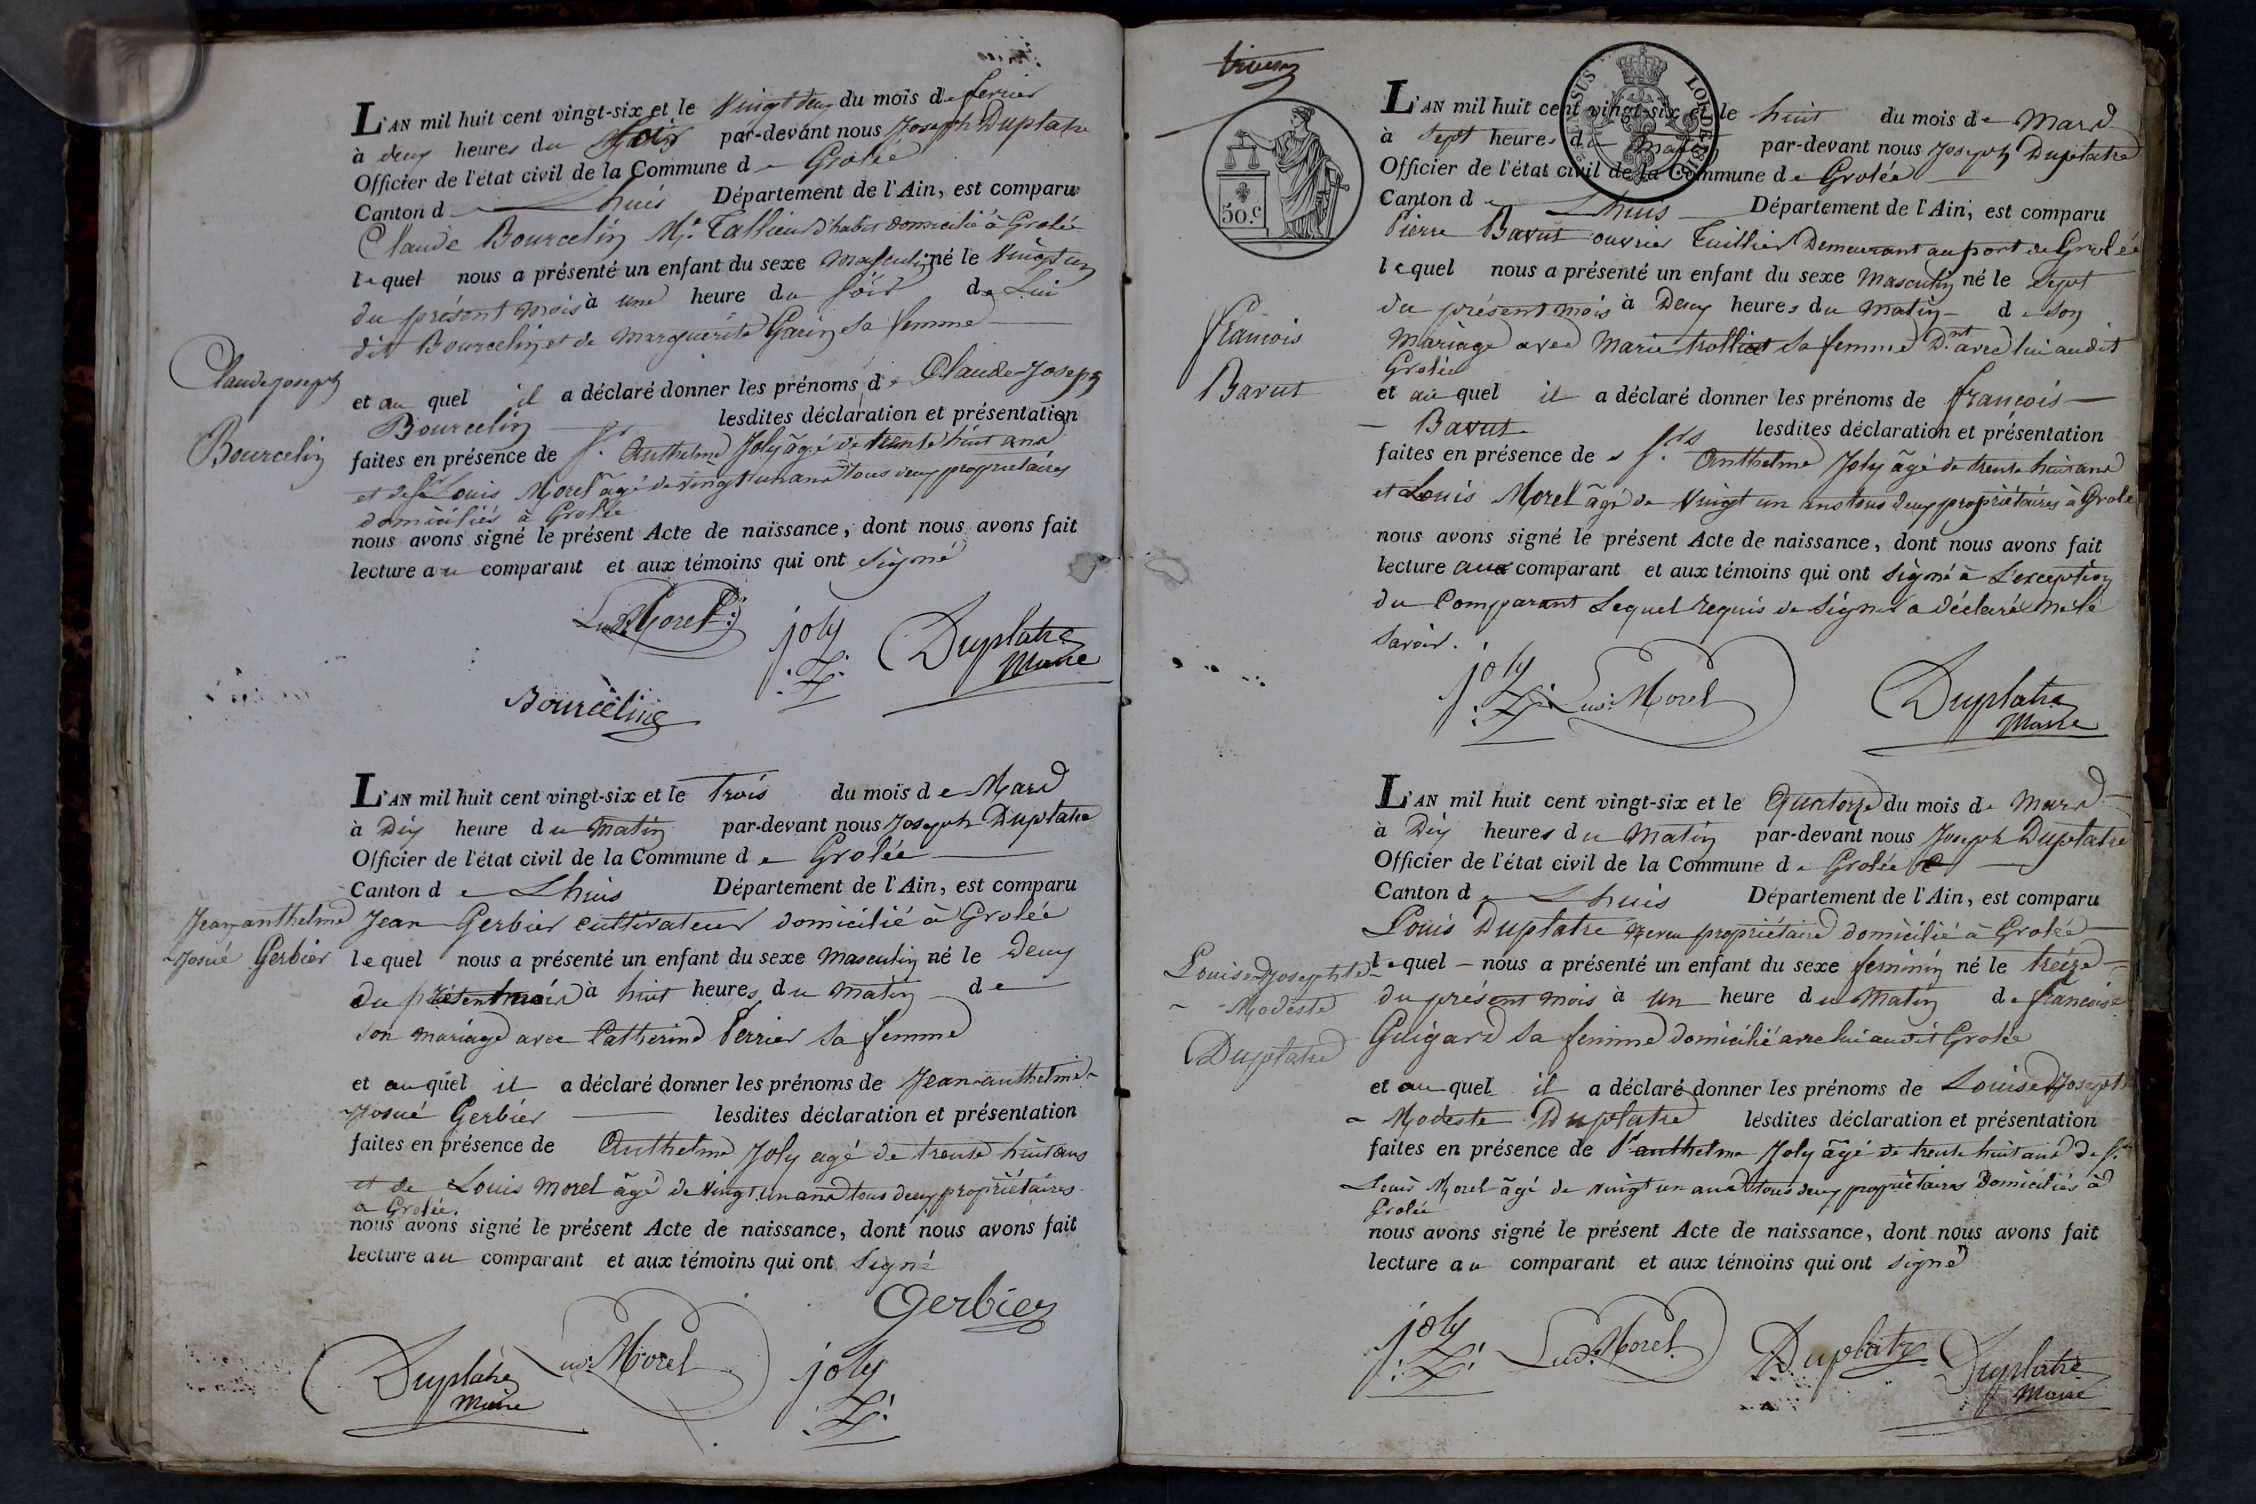 L'AN mil huit cent vingt-six et le vingt deux du mois de fevrier
à deux heures du soir par-devant nous Joseph Duplatre
Officier de l'état civil de la Commune de Grolée
Canton de Lhuis Département de l'Ain, est comparu
Claude Bourcelin Me. Tallieur d'habit domicilié à Grolée
lequel nous a présenté un enfant du sexe masculin né le vingt un
du présent mois à une heure du soir de Lui
dit Bourcelin et de marguerite Garin sa femme
Claude joseph
et au quel il a déclaré donner les prénoms de Claude-Joseph
Bourcelin lesdites déclaration et présentation
Bourcelin
faites en présence de Sr. Anthelme Joly âgé de trente huit ans
et de Sr Louis Morel âgé de vingt un ans tous deux propriétaires
domiciliés à Grolée
nous avons signé le présent Acte de naissance, dont nous avons fait
lecture au comparant et aux témoins qui ont signé
Lud. Morel joly Duplatre
Maire
Bourcelin
L'AN mil huit cent vingt-six et le trois du mois de Mars
à Dix heure du Matin par-devant nous Joseph Duplatre
Officier de l'état civil de la Commune de Grolée
Canton de Lhuis Département de l'Ain, est comparu
Jean anthelme
Jean Gerbier cultivateur domicilié à Grolée
Josué Gerbier
lequel nous a présenté un enfant du sexe masculin né le Deux
du présent mois à huit heures du matin de
son mariage avec Catherine Perrier sa femme
et au quel il a déclaré donner les prénoms de Jean-anthelme-
Josué Gerbier lesdites déclaration et présentation
faites en présence de Anthelme Joly agé de trente huit ans
et de Louis Morel âgé de vingt un ans tous deux propriétaires
a Grolée.
nous avons signé le présent Acte de naissance, dont nous avons fait
lecture au comparant et aux témoins qui ont signé
Gerbier
Duplatre Lud. Morel joly
Maire
50.c
L'AN mil huit cent vingt-six et le huit du mois de Mars
à sept heures du matin par-devant nous Joseph Duplatre
Officier de l'état civil de la Commune de Grolée
Canton de Lhuis Département de l'Ain, est comparu
Pierre Bavut ouvrier Tuillier Demeurant au port de Grolée
lequel nous a présenté un enfant du sexe Masculin né le sept
du présent mois à Deux heures du matin de son
francois
Mariage avec Marie trolliet sa femme D.nt avec lui audit
Grolée
Bavut
et au quel il a déclaré donner les prénoms de francois
Bavut lesdites déclaration et présentation
faites en présence de Srs. Anthelme Joly âgé de trente huit ans
et Louis Morel âgé de vingt un ans tous deux propriétaires à Grolée
nous avons signé le présent Acte de naissance, dont nous avons fait
lecture au comparant et aux témoins qui ont signé à L'exception
du Comparant Lequel requis de signer a déclaré ne le
savoir.
joly Lud. Morel Duplatre
Maire
L'AN mil huit cent vingt-six et le Quatorze du mois de Mars
à Dix heures du Matin par-devant nous Joseph Duplatre
Officier de l'état civil de la Commune de Grolée
Canton de Lhuis Département de l'Ain, est comparu
Louis Duplatre neveu propriétaire domicilié à Grolée
Louise Josephte
lequel nous a présenté un enfant du sexe feminin né le treize
Modeste
du présent mois à un heure du Matin de francoise
Guigard sa femme domicilié avec lui audit Grolée
Duplatre
et au quel il a déclaré donner les prénoms de Louise Joseph
Modeste Duplatre lesdites déclaration et présentation
faites en présence de Sr anthelme Joly âgé de trente huit ans de Sr
Louis Morel âgé de vingt un ans tous deux propriétaires Domiciliés à
Grolée
nous avons signé le présent Acte de naissance, dont nous avons fait
lecture au comparant et aux témoins qui ont signé
joly Lud. Morel Duplatre Duplatre
Maire